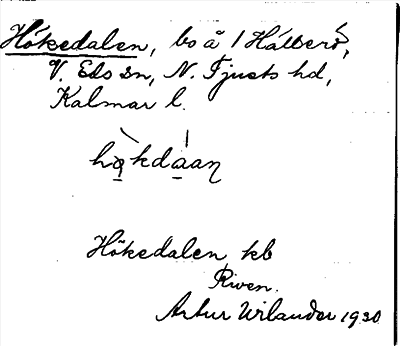 Hökedalen, bs å 1 Hålberö,
V. Eds sn, N. Tjusts hd,
Kalmar l.
hǫkdaan
Hökedalen kb
Riven.
Artur Wilander 1930